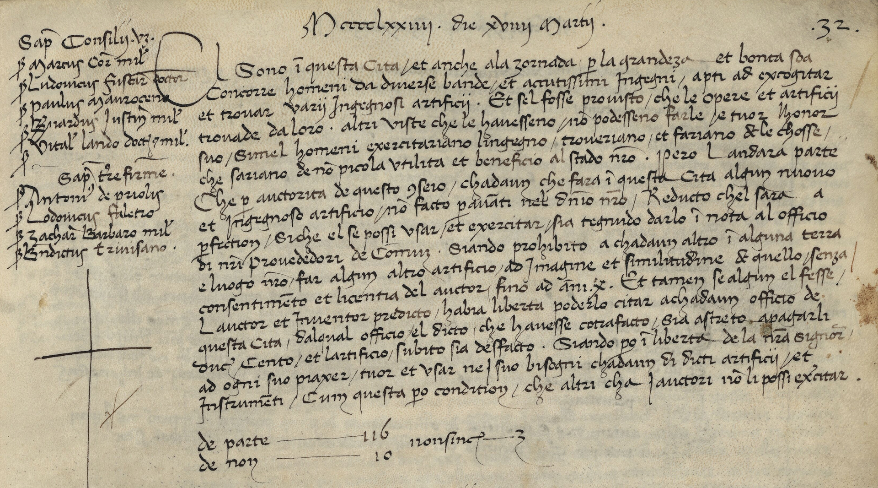 Mccccclxxiiii. die xviiii Martij.
.32.
Sap̃ Consilij. Vz.
ꝑ Marcus Cor̃ mil̃
ꝑ Ludovicus fuscar̃ doctor
ꝑ paulus Mauroceno
ꝑ Bñardus Justiñ mil̃
ꝑ Vital̃ lando doct̃ ⁊ mil̃.
ꝑ
Sap̃ tr̃e firme.
ꝑ Antoni⁹ de priolis
ꝑ Lodovicus faletro
ꝑ Zachar̃ Barbaro mil̃
ꝑ Bñdictus trivisano.
EL Sono ĩ questa Cita / et anche ala zornada ꝑ la grandeza et bonta soa
Concorre homeni da diverse bande / et acutissimi Ingegni / apti ad excogitar
et trovar varij Ingegnosi artificij. Et sel fosse provisto / che le opere et artificij
trovade da loro. altri viste che le havesseno / nõ podesseno farle / e tuor lhonor
suo / Simel homeni exercitariano lingegno / troveriano / et fariano de le chosse /
che sariano de nõ picola utilita et beneficio al stado nr̃o. Pero Landara parte
Che ꝑ auctorita de questo ꝯseio / chadaun che fara ĩ questa Cita algun nuovo
et Ingegnoso artificio / nõ facto ꝑ avãti nel dñio nr̃o / Reducto chel sara a
ꝑfection / Siche el se possi usar / et exercitar / sia tegnudo darlo ĩ nota al officio
di nr̃i Provededori de Comun. Siando prohibito a chadaun altro ĩ alguna terra
e luogo nr̃o / far algun altro artificio / ad Imagine et similitudine de quello / senza
consentimẽto et licentia del auctor / fino ad ãni .x. Et tamen se algun el fesse /
Lauctor et Inventor predicto / habia liberta poderlo citar a chadaun officio de
questa Cita / dal qual officio el dicto / che havesse cõtrafacto / sia astreto apagarli
duc̃ Cento / et lartificio / subito sia desfacto. Siando po ĩ liberta de la nr̃a Signor̃
ad ogni suo piaxer / tuor et usar nei suo bisogni chadaun di dicti artificij / et
Instrumẽti / Cum questa ꝑo condition / che altri cha I auctori nõ li possi exercitar.
de parte 116
de non 10
non sinc̃ 3